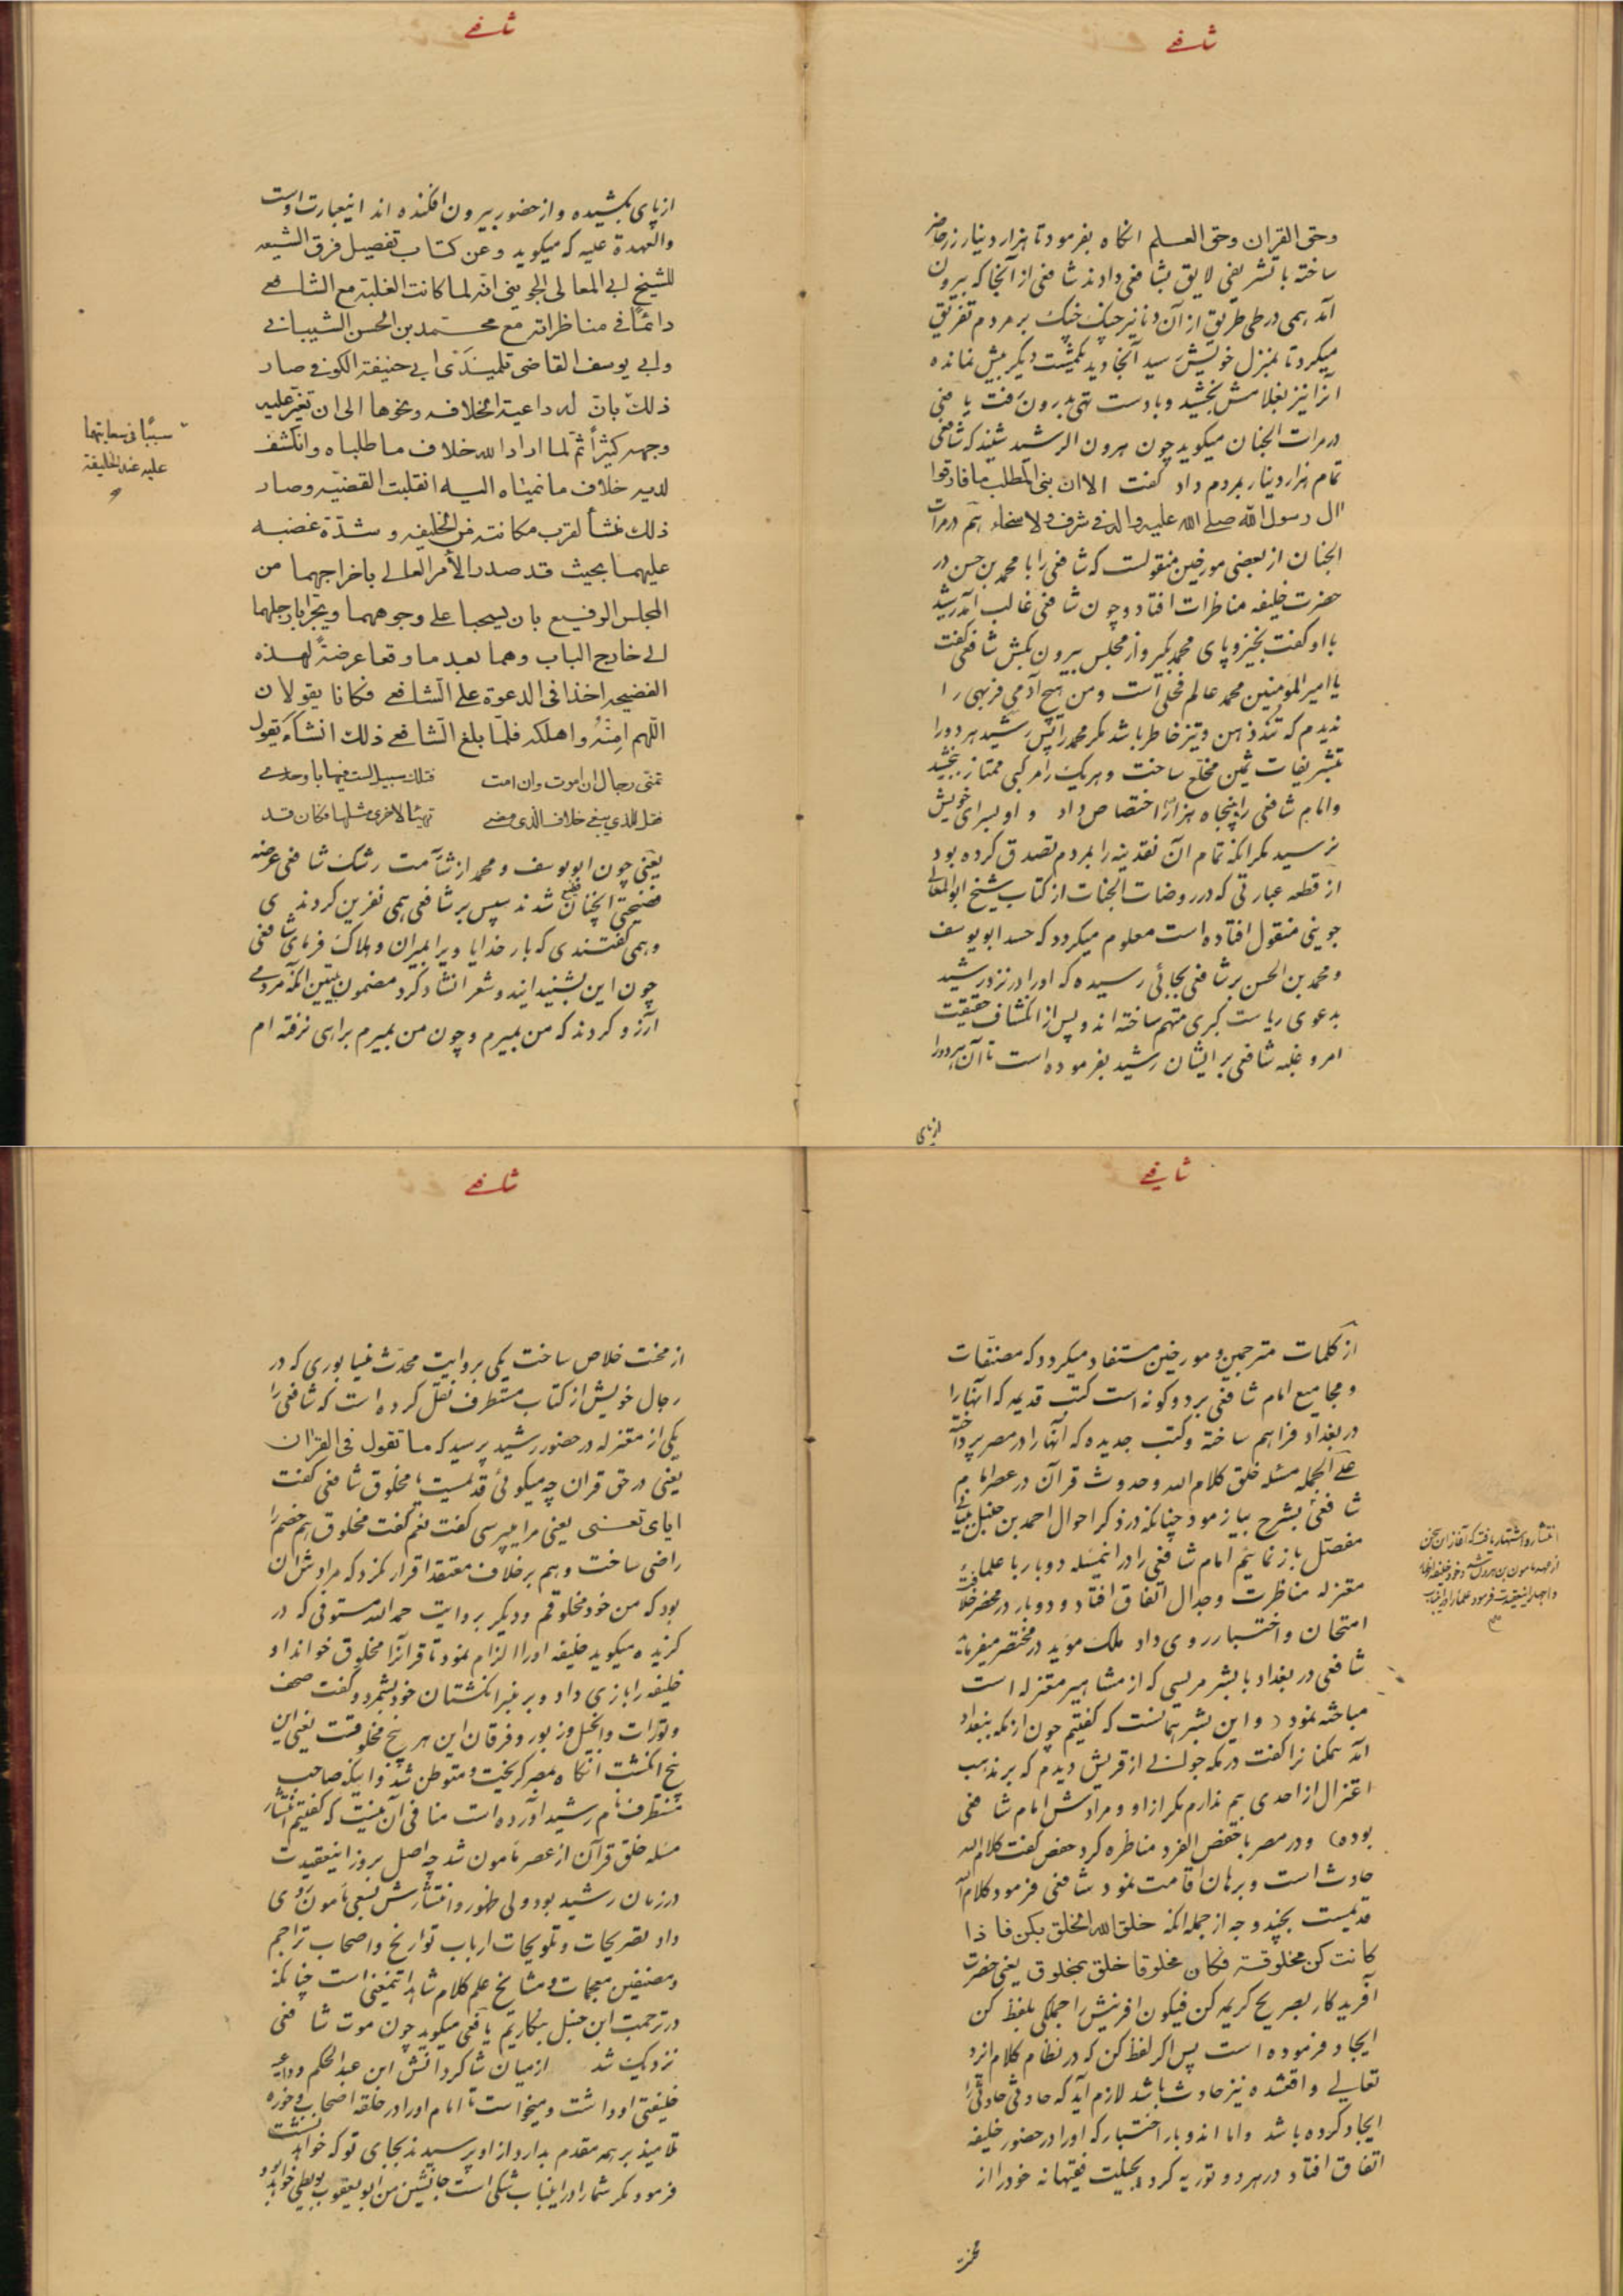 شافعی
وحق القران وحق العلم انکاه بفرمود تا هزار دینار زر حاضر
ساخته با تشریفی لایق بشافعی دادند شافعی از آنجا که بیرون
آمد همی در طی طریق از آن دنانیر چنک چنک بر مردم تفریق
میکرد تا بمنزل خویش رسید آنجا دید یکمشت دیکر بیش نمانده
انرا نیز بغلامش بخشید و با دست تهی بدرون رفت یافعی
در مرات الجنان میکوید چون هرون الرشید شنید که شافعی
تمام هزار دینار بمردم داد کفت الا ان بنی المطلب ما فارقوا
ال رسول الله صلی الله علیه واله فی شرف ولا سخاء هم در مرات
الجنان از بعضی مورخین منقولست که شافعی را با محمد بن حسن در
حضرت خلیفه مناظرات افتاد و چون شافعی غالب آمد رشید
با او کفت بخیز و پای محمد بکیر و از مجلس بیرون بکش شافعی کفت
یا امیر المؤمنین محمد عالم فحلی است و من هیچ آدمی فربهی را
ندیدم که تند ذهن و تیز خاطر باشد مکر محمد را پس رشید هر دو را
بتشریفات ثمین مخلع ساخت و هر یک را مرکبی ممتاز بخشید
وامام شافعی را پنجاه هزار اختصاص داد و او بسرای خویش
نرسید مکر انکه تمام آن نقدینه را بمردم تصدق کرده بود
از قطعه عبارتی که در روضات الجنات از کتاب شیخ ابو المعالی
جوینی منقول افتاده است معلوم میکردد که حسد ابو یوسف
و محمد بن الحسن بر شافعی بجائی رسیده که او را در نزد رشید
بدعوی ریاست کبری متهم ساخته اند و پس از انکشاف حقیقت
امر و غلبه شافعی بر ایشان رشید بفرموده است تا آن هر دو را
از پای
شافعی
از پای بکشیده و از حضور بیرون افکنده اند اینعبارت اوست
والعهدة علیه که میکوید وعن کتاب تفصیل فرق الشیعه
للشیخ ابی المعالی الجوینی انه لما کانت الغلبة مع الشافعی
دائمًا فی مناظراته مع محمد بن الحسن الشیبانی
وابی یوسف القاضی تلمیذی ابی حنیفة الکوفی صار
ذلک بان له داعیة الخلافه ونحوها الی ان تغیر علیه
وجهه کثیرًا ثم لما اراد الله خلاف ما طلباه وانکشف
لدیه خلاف ما نمیاه الیه انقلبت القضیه وصار
ذلک منشأ لقرب مکانته من الخلیفه وشدة غضبه
علیهما بحیث قد صدر الأمر العالی باخراجهما من
المجلس الرفیع بان یسحبا علی وجوههما ویجرا بارجلهما
الی خارج الباب وهما بعد ما وقعا عرضةً لهذه
الفضیحه اخذا فی الدعوة علی الشافعی فکانا یقولان
اللهم امته واهلکه فلما بلغ الشافعی ذلک انشاء یقول
تمنی رجال ان اموت وان امت فتلک سبیل لست فیها باوحدی
فقل للذی یبغی خلاف الذی مضی تهیئا لاخری مثلها فکان قد
یعنی چون ابو یوسف و محمد از شآمت رشک شافعی عرضه
فضیحتی انچنان فظیع شدند سپس بر شافعی همی نفرین کردندی
و همی کفتندی که بار خدایا ویرا بمیران و هلاک فرمای شافعی
چون این بشنید ایندو شعر انشاد کرد مضمون بیتین انکه مردمی
آرزو کردند که من بمیرم و چون من بمیرم براهی نرفته ام
سببًا فی سعایتهما
علیه عند الخلیفة
شافعی
از کلمات مترجمین و مورخین مستفاد میکردد که مصنفات
و مجامیع امام شافعی بر دو کونه است کتب قدیمه که آنها را
در بغداد فراهم ساخته و کتب جدیده که آنها را در مصر پرداخته
علی الجمله مسئله خلق کلام الله و حدوث قرآن در عصر امام
شافعی بشرح بیازمود چنانکه در ذکر احوال احمد بن حنبل ببیانی
مفصل باز نمائیم امام شافعی را در اینمسئله دو بار با علماء
معتزله مناظرت و جدال اتفاق افتاد و دو بار در محضر خلافت
امتحان و اختبار روی داد ملک مؤید در مختصر میفرماید
شافعی در بغداد با بشر مریسی که از مشاهیر معتزله است
مباحثه نمود (و این بشر همانست که کفتیم چون از مکه ببغداد
آمد همکنانرا کفت در مکه جوانی از قریش دیدم که بر مذهب
اعتزال از احدی بیم ندارم مکر از او و مرادش امام شافعی
بوده) و در مصر با حفص الفرد مناظره کرد حفص کفت کلام الله
حادث است و برهان اقامت نمود شافعی فرمود کلام الله
قدیمست بچند وجه از جمله انکه خلق الله الخلق بکن فاذا
کانت کن مخلوقة فکان مخلوقا خلق بمخلوق یعنی حضرت
آفریدکار بصریح کریمه کن فیکون افرینش را جملکی بلفظ کن
ایجاد فرموده است پس اکر لفظ کن که در نظام کلام ایزد
تعالی واقعشده نیز حادث باشد لازم آید که حادثی حادثی را
ایجاد کرده باشد واما اندو بار اختبار که او را در حضور خلیفه
اتفاق افتاد در هر دو توریه کرد بحیلت فقیهانه خود را از
انتشار و اشتهار یافت که آغاز این سخن
محنت
شافعی
از محنت خلاص ساخت یکی بروایت محدث نیشابوری که در
رجال خویش از کتاب مستطرف نقل کرده است که شافعی را
یکی از معتزله در حضور رشید پرسید که ما تقول فی القران
یعنی در حق قران چه میکوئی قدیمست یا مخلوق شافعی کفت
ایای تعنی یعنی مرا میپرسی کفت نعم کفت مخلوق هم خصم را
راضی ساخت و هم بر خلاف معتقد اقرار نکرد که مرادش ان
بود که من خود مخلوقم و دیکر بروایت حمد الله مستوفی که در
کزیده میکوید خلیفه او را الزام نمود تا قرانرا مخلوق خواند او
خلیفه را بازی داد و بر بنبر انکشتان خود بشمرد و کفت صحف
و تورات و انجیل و زبور و فرقان این هر پنج مخلوقست یعنی این
پنج انکشت انکاه بمصر کریخت و متوطن شد و اینکه صاحب
مستطرف نام رشید آورده است منافی آن نیست که کفتیم انتشار
مسئله خلق قرآن از عصر مأمون شد چه اصل بروز اینعقیدت
در زمان رشید بود ولی ظهور و انتشارش بسعی مأمون روی
داد تصریحات و تلویحات ارباب تواریخ و اصحاب تراجم
و مصنفین معجمات و مشایخ علم کلام شاهد اینمعنی است چنانکه
در ترجمت ابن حنبل بنکاریم یافعی میکوید چون موت شافعی
نزدیک شد از میان شاکردانش ابن عبد الحکم داعیه
خلیفتی او داشت و میخواست تا امام او را در حلقه اصحاب و حوزه
تلامیذ بر همه مقدم بدارد از او پرسیدند بجای تو که خواهد نشست
فرمود مکر شما را در اینباب شکی است جانشین من ابو یعقوب بویطی خواهد بود